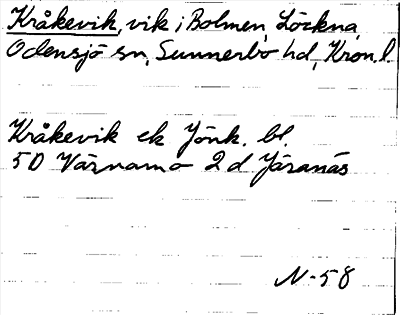 Kråkevik, vik i Bolmen, Löckna,
Odensjö sn, Sunnerbo hd, Kron. l.
Kråkevik ek Jönk. bl.
5D Värnamo 2d Järanäs
N-58